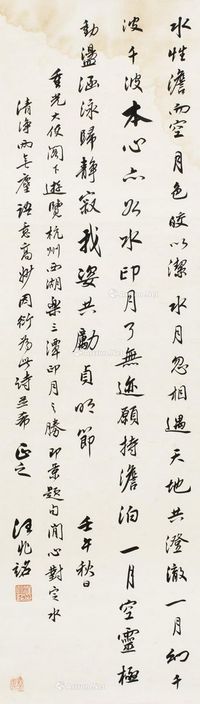 水性澹而空月色皎以潔水月忽相遇天地共澄澈一月幻千
波千波本一心亦如水印月了無迹願持澹泊一月空靈極
動盪涵泳歸靜寂我姿共勵貞明節 壬午秋日
重光大使閣下遊覽杭州西湖樂三潭印月之勝即景題句閒心對定水
清淨兩無塵語意高妙因衍為此詩並希 正之
汪兆銘